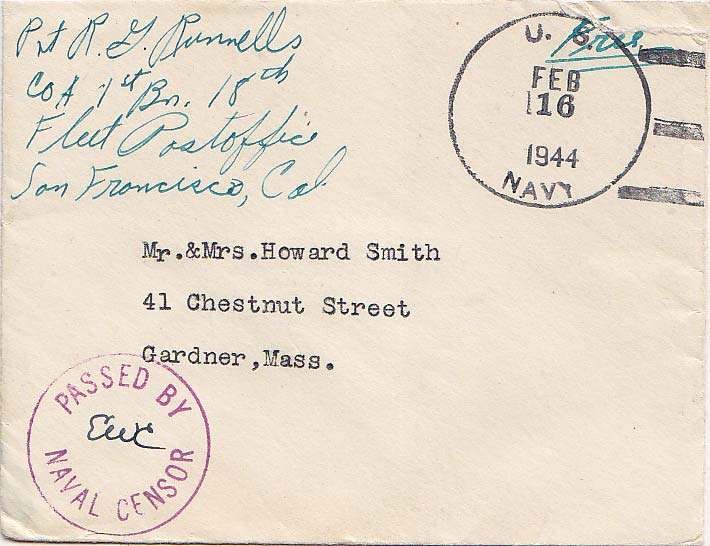 Pvt R. G. Runnells
Co A 1st Bn. 18th
Fleet Postoffice
San Francisco, Cal
Free
U. S.
FEB
16
1944
NAVY
Mr.&Mrs.Howard Smith
41 Chestnut Street
Gardner,Mass.
PASSED BY
NAVAL CENSOR